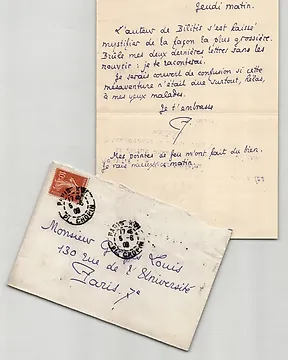 Jeudi matin.
L'auteur de Bilitis s'est laissé
mystifier de la façon la plus grossière.
Brûle mes deux dernières lettres sans les
rouvrir : je te raconterai.
Je serais couvert de confusion si cette
mésaventure n'était due surtout, hélas,
à mes yeux malades.
Je t'embrasse
Mes pointes de feu m'ont fait du bien.
Je vais mieux ce matin.
Monsieur Louis
130 rue de l'Université
Paris. 7e
10
PARIS
17
5
09
R. CHOPIN